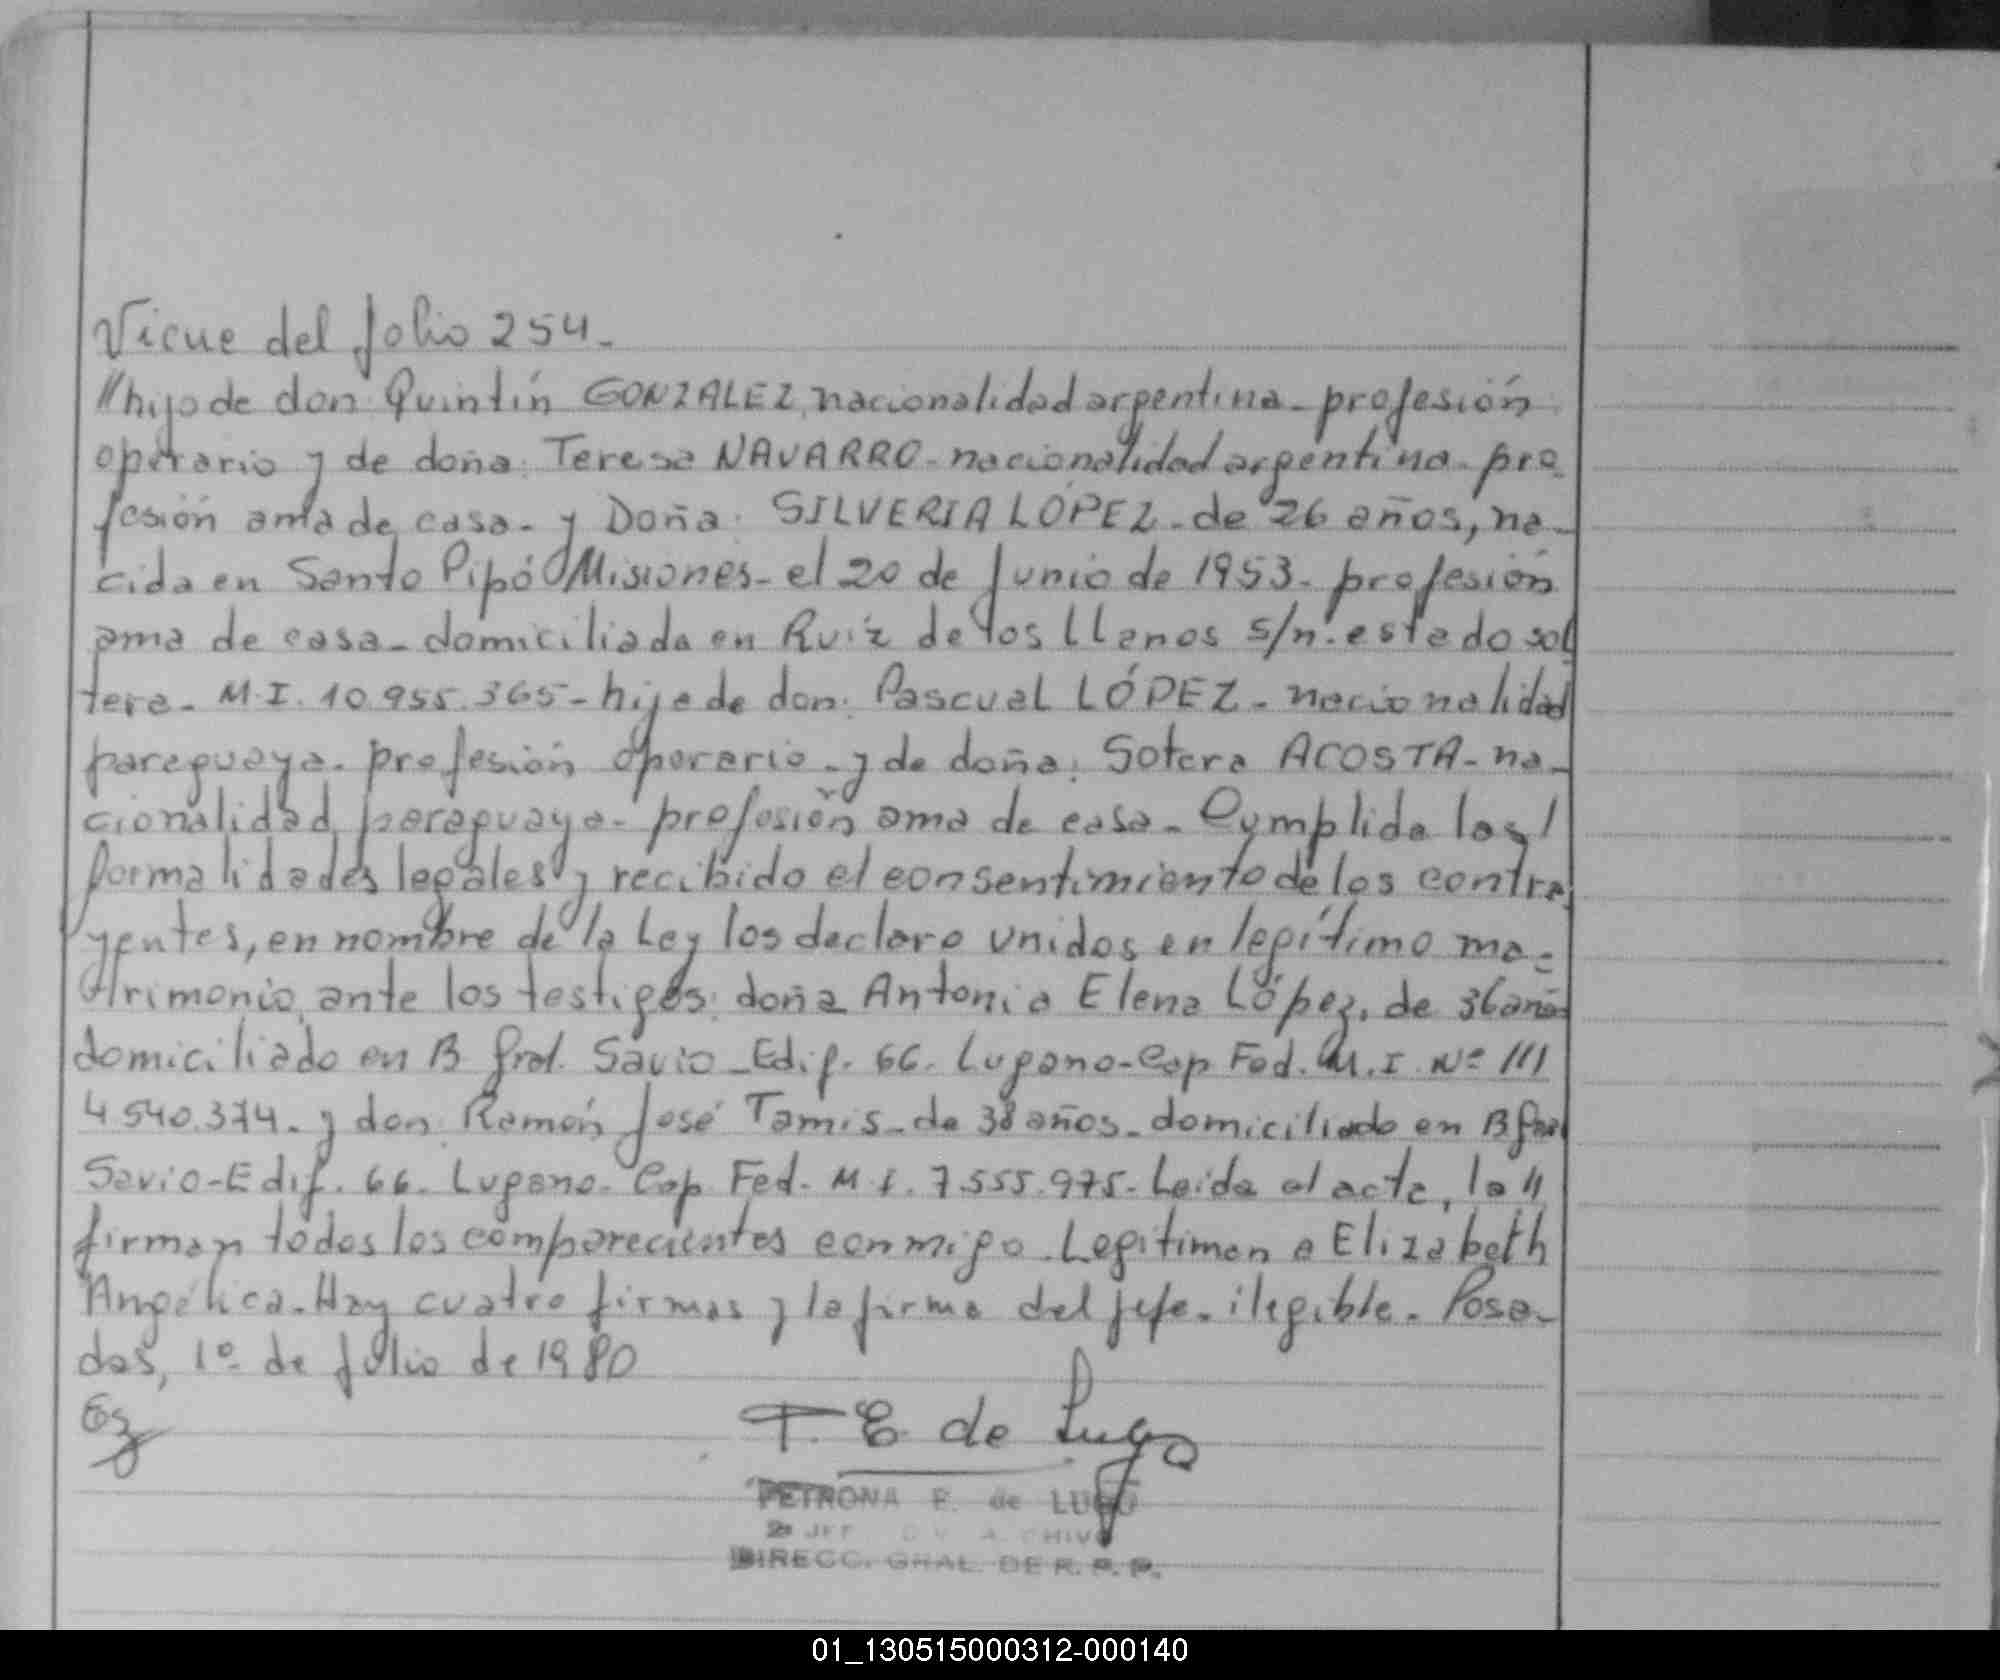 Viene del folio 254.
//hijo de don: Quintín GONZALEZ, nacionalidad argentina - profesión
operario y de doña: Teresa NAVARRO - nacionalidad argentina - pro
fesión ama de casa - y Doña: SILVERIA LÓPEZ - de 26 años, na-
cida en Santo Pipó Misiones - el 20 de Junio de 1953 - profesión
ama de casa - domiciliada en Ruiz de los Llanos s/n. estado sol
tera - M.I. 10.955.365 - hija de don: Pascual LÓPEZ - nacionalidad
paraguaya - profesión operario - y de doña: Sotera ACOSTA - na-
cionalidad paraguaya - profesión ama de casa - Cumplida las/
formalidades legales y recibido el consentimiento de los contra
yentes, en nombre de la Ley los declaro unidos en legítimo ma=
trimonio, ante los testigos: doña Antonia Elena López, de 36 años
domiciliado en B. Gral. Savio - Edif. 66. Lugano - Cap Fed. M.I. Nº ///
4.540.374 - y don: Ramón José Tamis - de 38 años - domiciliado en B Gral
Savio - Edif. 66 - Lugano - Cap. Fed - M.I. 7.555.975 - Leida el acta, la //
firman todos los comparecientes conmigo. Legitiman a Elizabeth
Angélica - Hay cuatro firmas y la firma del jefe - ilegible - Posa-
das, 1º de Julio de 1980
P. E. de Lugo
PETRONA E. de LUGO
DIRECC. GRAL. DE R. P. P.
01_130515000312-000140